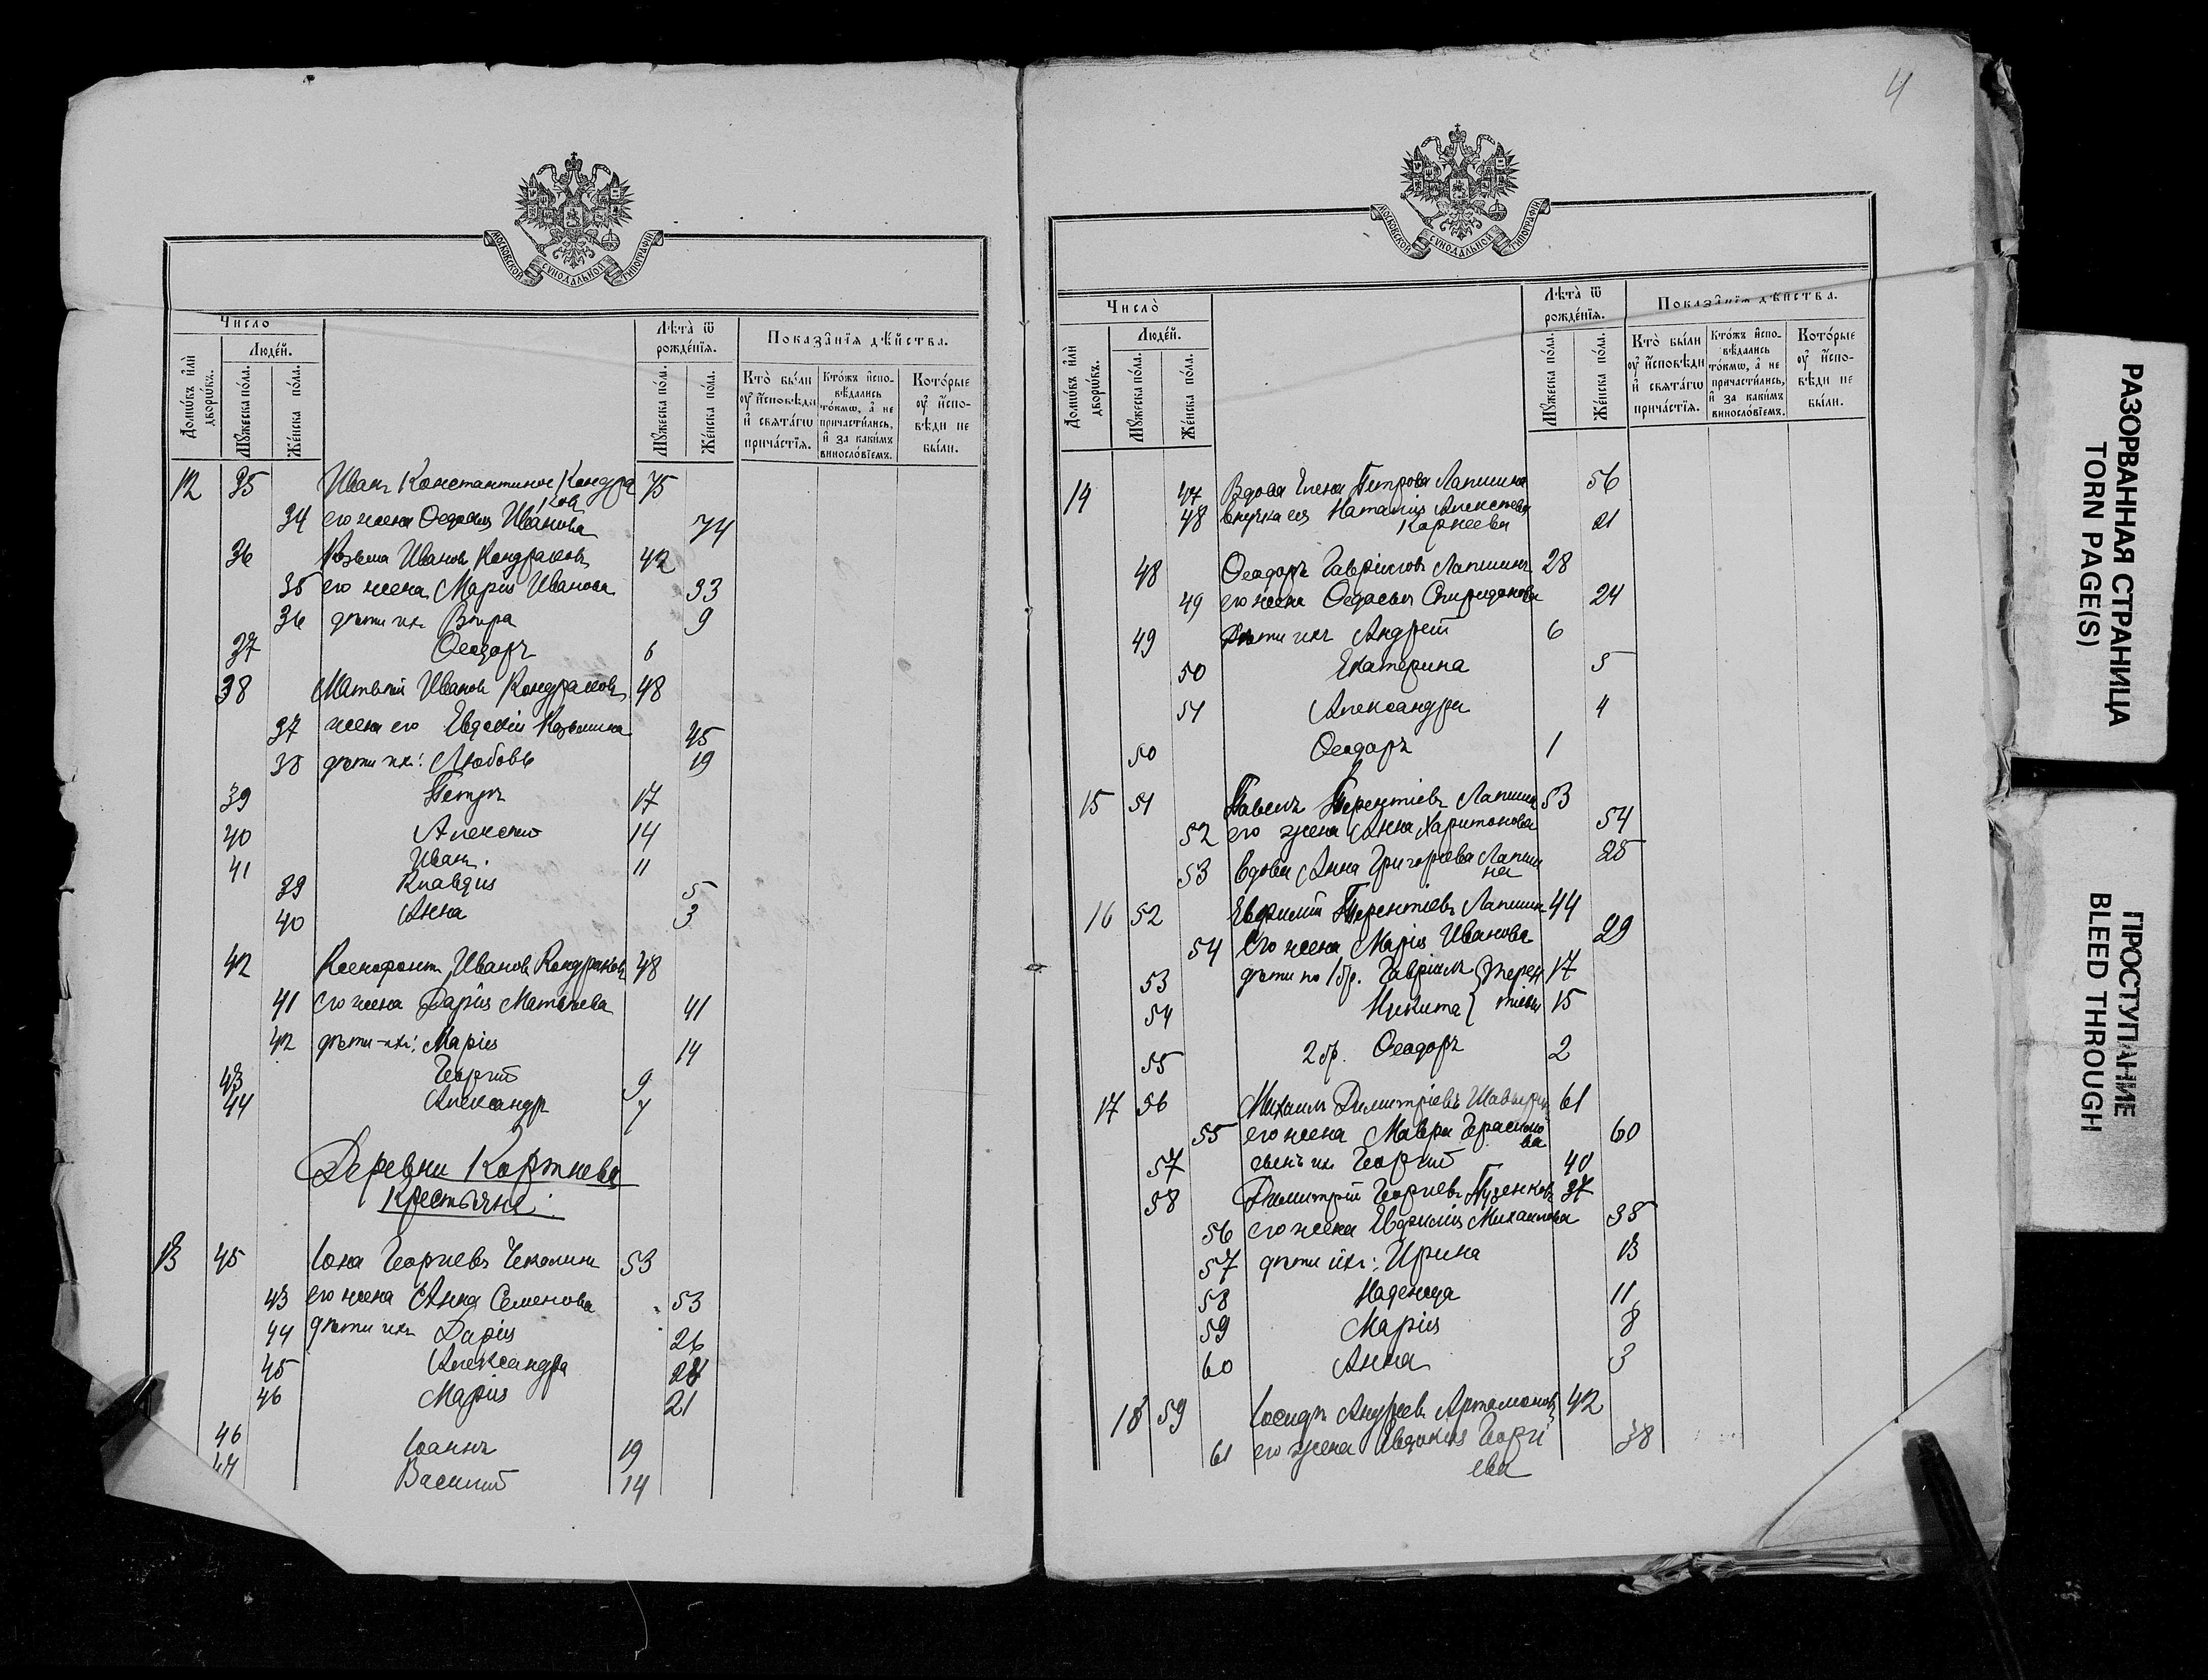 4
МОСКОВСКОЙ СУНОДАЛЬНОЙ ТИПОГРАФІИ
Число
Людей.
Домѡвъ или дворѡвъ.
Мꙋжеска пола.
Женска пола.
Лѣта ѿ рожденїѧ.
Мꙋжеска пола.
Женска пола.
Показанїѧ дѣйства.
Кто были ᲂу҆ исповѣди и свѧтагѡ причастїѧ.
Ктожъ исповѣдались токмѡ, а не причастились, и за какимъ винословїемъ.
Которые ᲂу҆ исповѣди не были.
12 35 Иванъ Константиновъ Кондра 75
ковъ
34 его жена Ѳедосья Иванова 74
36 Козьма Ивановъ Кондраковъ 42
35 его жена Марія Иванова 33
36 дѣти ихъ Вѣра 9
37 Ѳеодоръ 6
38 Матвѣй Ивановъ Кондраковъ 48
37 жена его Евдокія Козьмина 45
38 дѣти ихъ: Любовь 19
39 Петръ 17
40 Алексѣй 14
41 Иванъ 11
39 Клавдія 5
40 Анна 3
42 Ксенофонтъ Ивановъ Кондраковъ 48
41 его жена Дарія Матвѣева 41
42 дѣти ихъ: Марія 14
43 Георгій 9
44 Александръ 7
Деревни Кортнева
Крестьяне:
13 45 Іона Георгіевъ Чекалинъ 53
43 его жена Анна Семенова 53
44 дѣти ихъ Дарія 26
45 Александра 24
46 Марія 21
46 Іоаннъ 19
47 Василій 14
МОСКОВСКОЙ СУНОДАЛЬНОЙ ТИПОГРАФІИ
Число
Людей.
Домѡвъ или дворѡвъ.
Мꙋжеска пола.
Женска пола.
Лѣта ѿ рожденїѧ.
Мꙋжеска пола.
Женска пола.
Показанїѧ дѣйства.
Кто были ᲂу҆ исповѣди и свѧтагѡ причастїѧ.
Ктожъ исповѣдались токмѡ, а не причастились, и за какимъ винословїемъ.
Которые ᲂу҆ исповѣди не были.
14 47 Вдова Елена Петрова Лапшина 56
48 внучка ея Наталія Алексѣева
Корнеева 21
48 Ѳеодоръ Гавріиловъ Лапшинъ 28
49 его жена Ѳедосья Спиридонова 24
49 Дѣти ихъ Андрей 6
50 Екатерина 5
51 Александра 4
50 Ѳеодоръ 1
15 51 Павелъ Терентіевъ Лапшинъ 53
52 его жена Анна Харитонова 54
53 вдова Анна Григорьева Лапши 25
на
16 52 Евфимій Терентіевъ Лапшинъ 44
54 Его жена Марія Иванова 29
53 дѣти по 1 бр. Гавріилъ } Терен 17
54 Никита } тіевы 15
55 2 бр. Ѳеодоръ 2
17 56 Михаилъ Димитріевъ Шавыринъ 61
55 его жена Мавра Герасимо 60
ва
57 сынъ ихъ Георгій 40
58 Димитрій Георгіевъ Пузенковъ 37
56 его жена Евфимія Михаилова 35
57 дѣти ихъ: Ирина 13
58 Надежда 11
59 Марія 8
60 Анна 3
18 59 Іосифъ Андреевъ Артамоновъ 42
61 его жена Евдокія Георгі 38
ева
РАЗОРВАННАЯ СТРАНИЦА
TORN PAGE(S)
ПРОСТУПАНИЕ
BLEED THROUGH